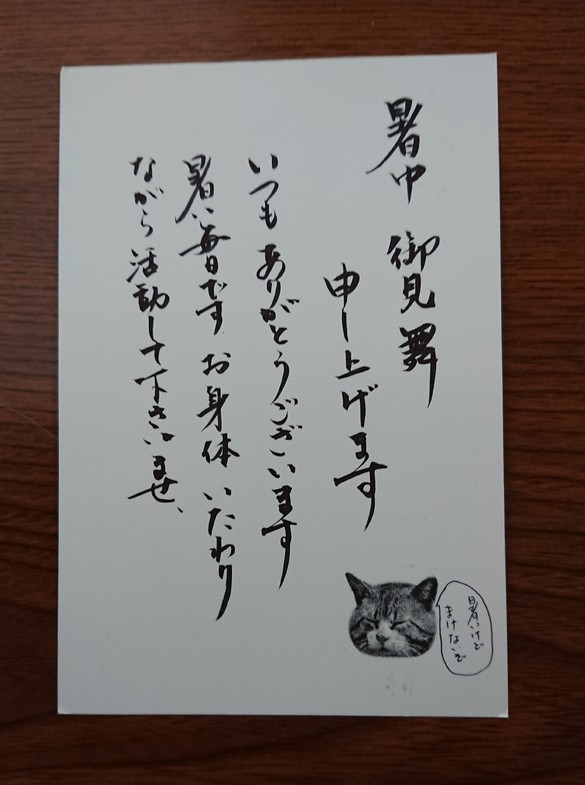 暑中 御見舞
申し上げます
いつもありがとうございます
暑い毎日です お身体 いたわり
ながら 活動して下さいませ、
暑いけど
まけないぞ